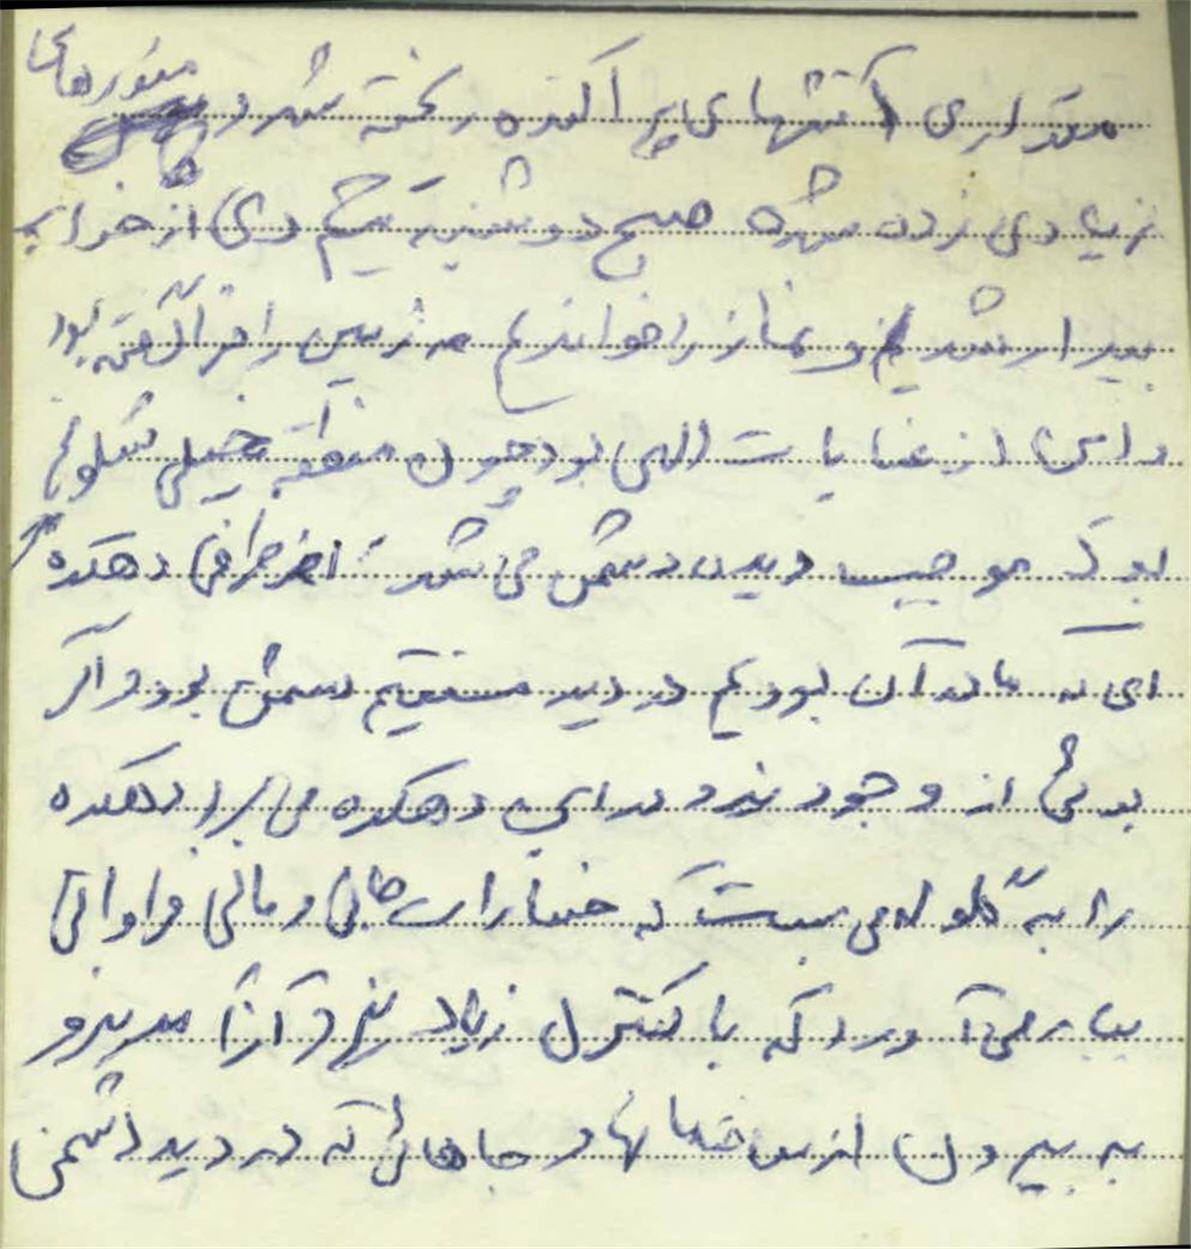 مقداری آتشهای پراکنده ریخته شد و منورهای
زیادی زده شده صبح دوشنبه پنجم دی از خواب
بیدار شدیم و نماز را خواندیم مه زمین را فرا گرفته بود
و این از عنایات الهی بود چون منطقه خیلی شلوغ
بود که موجب دیدن دشمن می شد از طرفی دهکده
ای که ما در آن بودیم در دید مستقیم دشمن بود و اگر
بوئی از وجود نیرو در این دهکده می برد دهکده
را به گلوله می بست که خسارات جانی و مالی فراوانی
ببار می آورد که با کنترل زیاد نیرو
به بیرون از ساختمانها و جاهائی که در دید دشمن